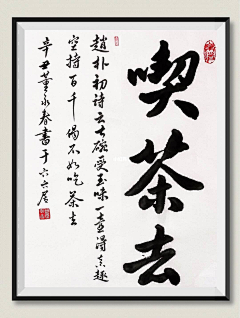 喫茶去
趙朴初詩云七碗受至味一壺得真趣
空持百千偈不如吃茶去
辛丑董永春書于六六居